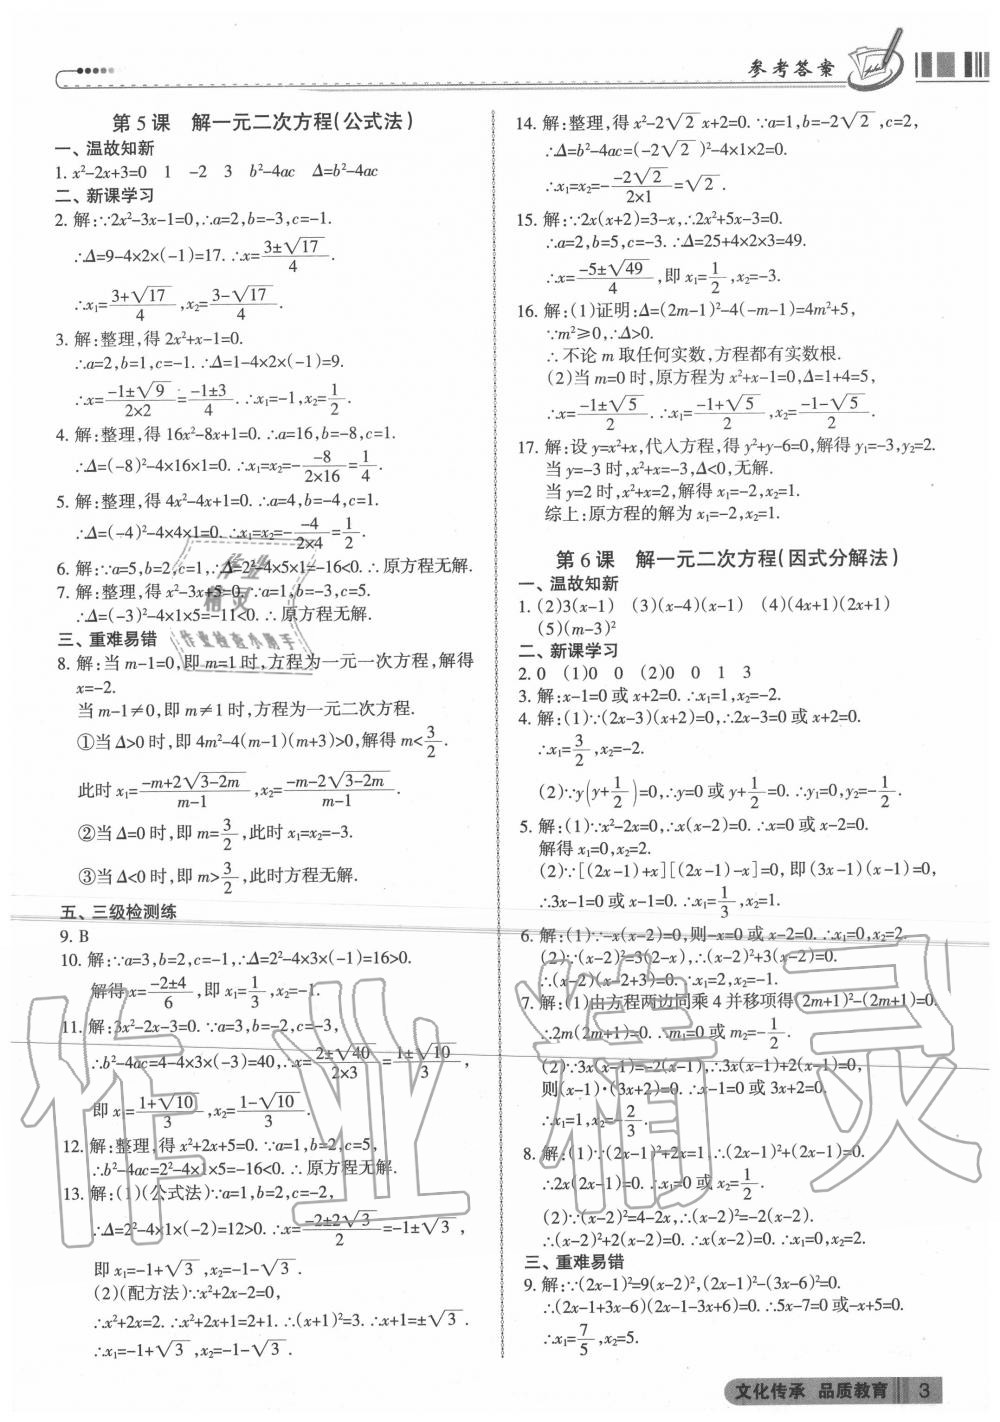 参考答案
第5课　解一元二次方程(公式法)
一、温故知新
1. x²-2x+3=0　1　-2　3　b²-4ac　Δ=b²-4ac
二、新课学习
2. 解:∵2x²-3x-1=0,∴a=2,b=-3,c=-1.
∴Δ=9-4×2×(-1)=17. ∴x=(3±√17)/4.
∴x₁=(3+√17)/4,x₂=(3-√17)/4.
3. 解:整理,得 2x²+x-1=0.
∴a=2,b=1,c=-1. ∴Δ=1-4×2×(-1)=9.
∴x=(-1±√9)/(2×2)=(-1±3)/4. ∴x₁=-1,x₂=1/2.
4. 解:整理,得 16x²-8x+1=0. ∴a=16,b=-8,c=1.
∴Δ=(-8)²-4×16×1=0. ∴x₁=x₂=-(-8)/(2×16)=1/4.
5. 解:整理,得 4x²-4x+1=0. ∴a=4,b=-4,c=1.
∴Δ=(-4)²-4×4×1=0. ∴x₁=x₂=-(-4)/(2×4)=1/2.
6. 解:∵a=5,b=2,c=1,∴Δ=2²-4×5×1=-16<0. ∴原方程无解.
7. 解:整理,得 x²-3x+5=0. ∵a=1,b=-3,c=5.
∴Δ=(-3)²-4×1×5=-11<0. ∴原方程无解.
三、重难易错
8. 解:当 m-1=0,即 m=1 时,方程为一元一次方程,解得
x=-2.
当 m-1≠0,即 m≠1 时,方程为一元二次方程.
①当 Δ>0 时,即 4m²-4(m-1)(m+3)>0,解得 m<3/2.
此时 x₁=(-m+2√(3-2m))/(m-1),x₂=(-m-2√(3-2m))/(m-1).
②当 Δ=0 时,即 m=3/2,此时 x₁=x₂=-3.
③当 Δ<0 时,即 m>3/2,此时方程无解.
五、三级检测练
9. B
10. 解:∵a=3,b=2,c=-1,∴Δ=2²-4×3×(-1)=16>0.
解得 x=(-2±4)/6,即 x₁=1/3,x₂=-1.
11. 解:3x²-2x-3=0. ∵a=3,b=-2,c=-3,
∴b²-4ac=4-4×3×(-3)=40,∴x=(2±√40)/(2×3)=(1±√10)/3,
即 x₁=(1+√10)/3,x₂=(1-√10)/3.
12. 解:整理,得 x²+2x+5=0. ∵a=1,b=2,c=5,
∴b²-4ac=2²-4×1×5=-16<0. ∴原方程无解.
13. 解:(1)(公式法)∵a=1,b=2,c=-2,
∴Δ=2²-4×1×(-2)=12>0. ∴x=(-2±2√3)/2=-1±√3,
即 x₁=-1+√3,x₂=-1-√3.
(2)(配方法)∵x²+2x-2=0,
∴x²+2x=2. ∴x²+2x+1=2+1. ∴(x+1)²=3. ∴x+1=±√3.
∴x₁=-1+√3,x₂=-1-√3.
14. 解:整理,得 x²-2√2x+2=0. ∵a=1,b=-2√2,c=2,
∴Δ=b²-4ac=(-2√2)²-4×1×2=0.
∴x₁=x₂=-(-2√2)/(2×1)=√2.
15. 解:∵2x(x+2)=3-x,∴2x²+5x-3=0.
∴a=2,b=5,c=-3. ∴Δ=25+4×2×3=49.
∴x=(-5±√49)/4,即 x₁=1/2,x₂=-3.
16. 解:(1)证明:Δ=(2m-1)²-4(-m-1)=4m²+5,
∵m²≥0,∴Δ>0.
∴不论 m 取任何实数,方程都有实数根.
(2)当 m=0 时,原方程为 x²+x-1=0,Δ=1+4=5,
∴x=(-1±√5)/2. ∴x₁=(-1+√5)/2,x₂=(-1-√5)/2.
17. 解:设 y=x²+x,代入方程,得 y²+y-6=0,解得 y₁=-3,y₂=2.
当 y=-3 时,x²+x=-3,Δ<0,无解.
当 y=2 时,x²+x=2,解得 x₁=-2,x₂=1.
综上:原方程的解为 x₁=-2,x₂=1.
第6课　解一元二次方程(因式分解法)
一、温故知新
1. (2)3(x-1)　(3)(x-4)(x-1)　(4)(4x+1)(2x+1)
(5)(m-3)²
二、新课学习
2. 0　(1)0　0　(2)0　0　1　3
3. 解:x-1=0 或 x+2=0. ∴x₁=1,x₂=-2.
4. 解:(1)∵(2x-3)(x+2)=0,∴2x-3=0 或 x+2=0.
∴x₁=3/2,x₂=-2.
(2)∵y(y+1/2)=0,∴y=0 或 y+1/2=0. ∴y₁=0,y₂=-1/2.
5. 解:(1)∵x²-2x=0,∴x(x-2)=0. ∴x=0 或 x-2=0.
解得 x₁=0,x₂=2.
(2)∵[(2x-1)+x][(2x-1)-x]=0,即(3x-1)(x-1)=0,
∴3x-1=0 或 x-1=0. ∴x₁=1/3,x₂=1.
6. 解:(1)∵-x(x-2)=0,则-x=0 或 x-2=0. ∴x₁=0,x₂=2.
(2)∵(x-2)²=3(2-x),∴(x-2)²+3(x-2)=0.
∴(x-2)(x-2+3)=0. ∴x₁=2,x₂=-1.
7. 解:(1)由方程两边同乘 4 并移项得(2m+1)²-(2m+1)=0.
∴2m(2m+1)=0. ∴m₁=0 或 m₂=-1/2.
(2)∵3x(x-1)=-2(x-1),∴3x(x-1)+2(x-1)=0,
则(x-1)·(3x+2)=0. ∴x-1=0 或 3x+2=0.
∴x₁=1,x₂=-2/3.
8. 解:(1)∵(2x-1)²+2x=1,∴(2x-1)²+(2x-1)=0.
∴2x(2x-1)=0. ∴x₁=0 或 x₂=1/2.
(2)∵(x-2)²=4-2x,∴(x-2)²=-2(x-2).
∴(x-2)²+2(x-2)=0. ∴x(x-2)=0. ∴x₁=0,x₂=2.
三、重难易错
9. 解:∵(2x-1)²=9(x-2)²,(2x-1)²-(3x-6)²=0.
∴(2x-1+3x-6)(2x-1-3x+6)=0. ∴5x-7=0 或-x+5=0.
∴x₁=7/5,x₂=5.
作业精灵
作业检查小助手
作业精灵
文化传承　品质教育　3